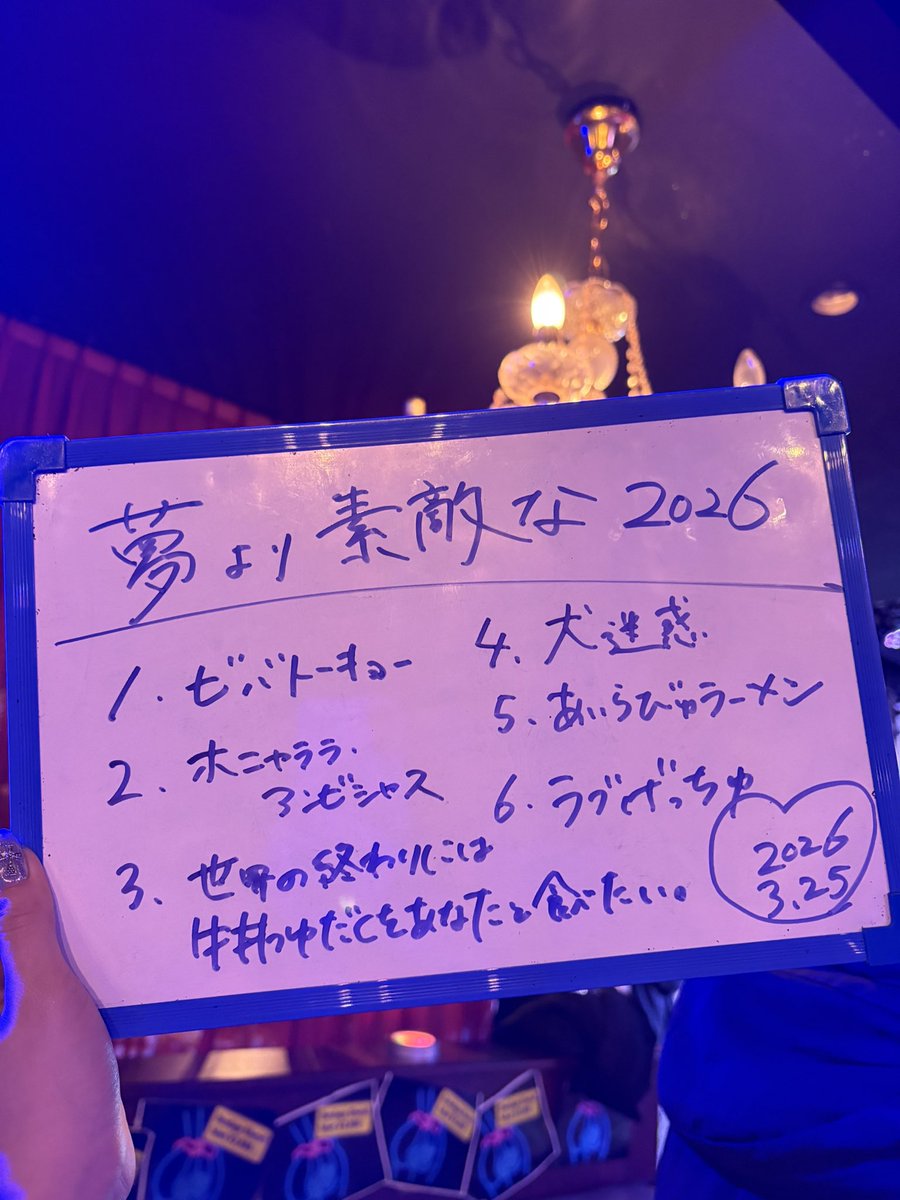 夢より素敵な2026
1. ビバトーキョー
2. ホニャララ・
アンビシャス
3. 世界の終わりには
牛丼つゆだくをあなたと食べたい。
4. 犬迷惑
5. あいらびゅラーメン
6. ラブげっちゅ
2026
3.25